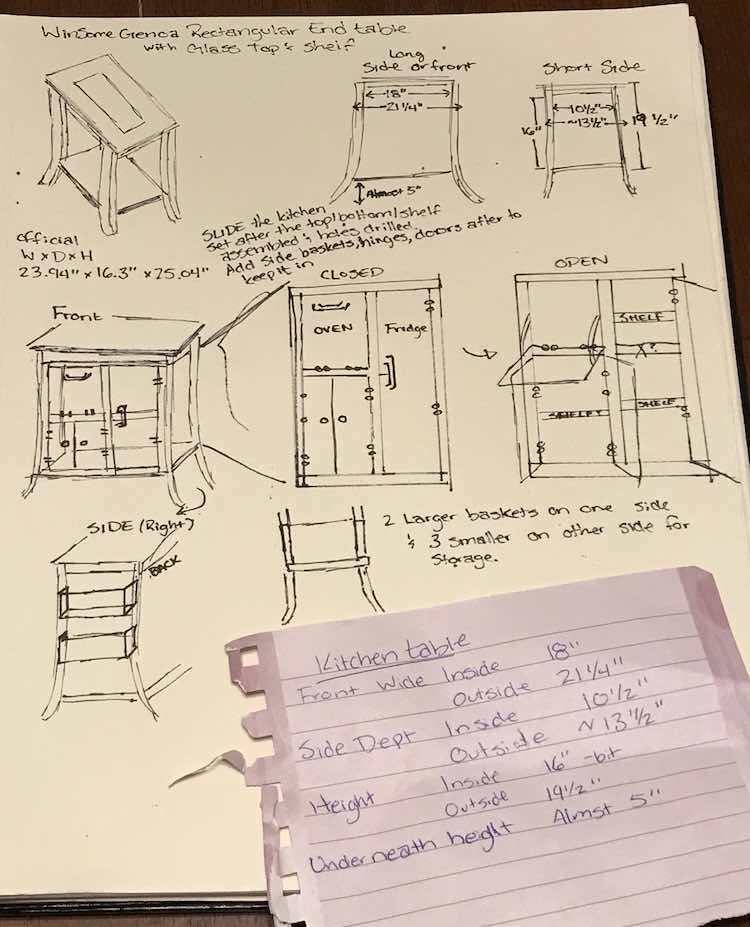 Winsome Genoa Rectangular End table
with Glass Top & Shelf
Long
Side or front
18"
~21 1/4"
Almost 5"
Short Side
10 1/2"
~13 1/2"
16"
19 1/2"
official
W x D x H
23.94" x 16.3" x 25.04"
SLIDE the kitchen
set after the top/bottom/shelf
assembled & holes drilled.
Add side baskets, hinges, doors after to
keep it in
Front
CLOSED
OVEN
Fridge
OPEN
SHELF
X?
SHELF?
SHELF
SIDE (Right)
BACK
2 Larger baskets on one side
& 3 smaller on other side for
storage.
Kitchen table
Front Wide Inside 18"
Outside 21 1/4"
Side Dept Inside 10 1/2"
Outside ~ 13 1/2"
Height Inside 16" -bit
Outside 19 1/2"
Underneath height Almst 5"